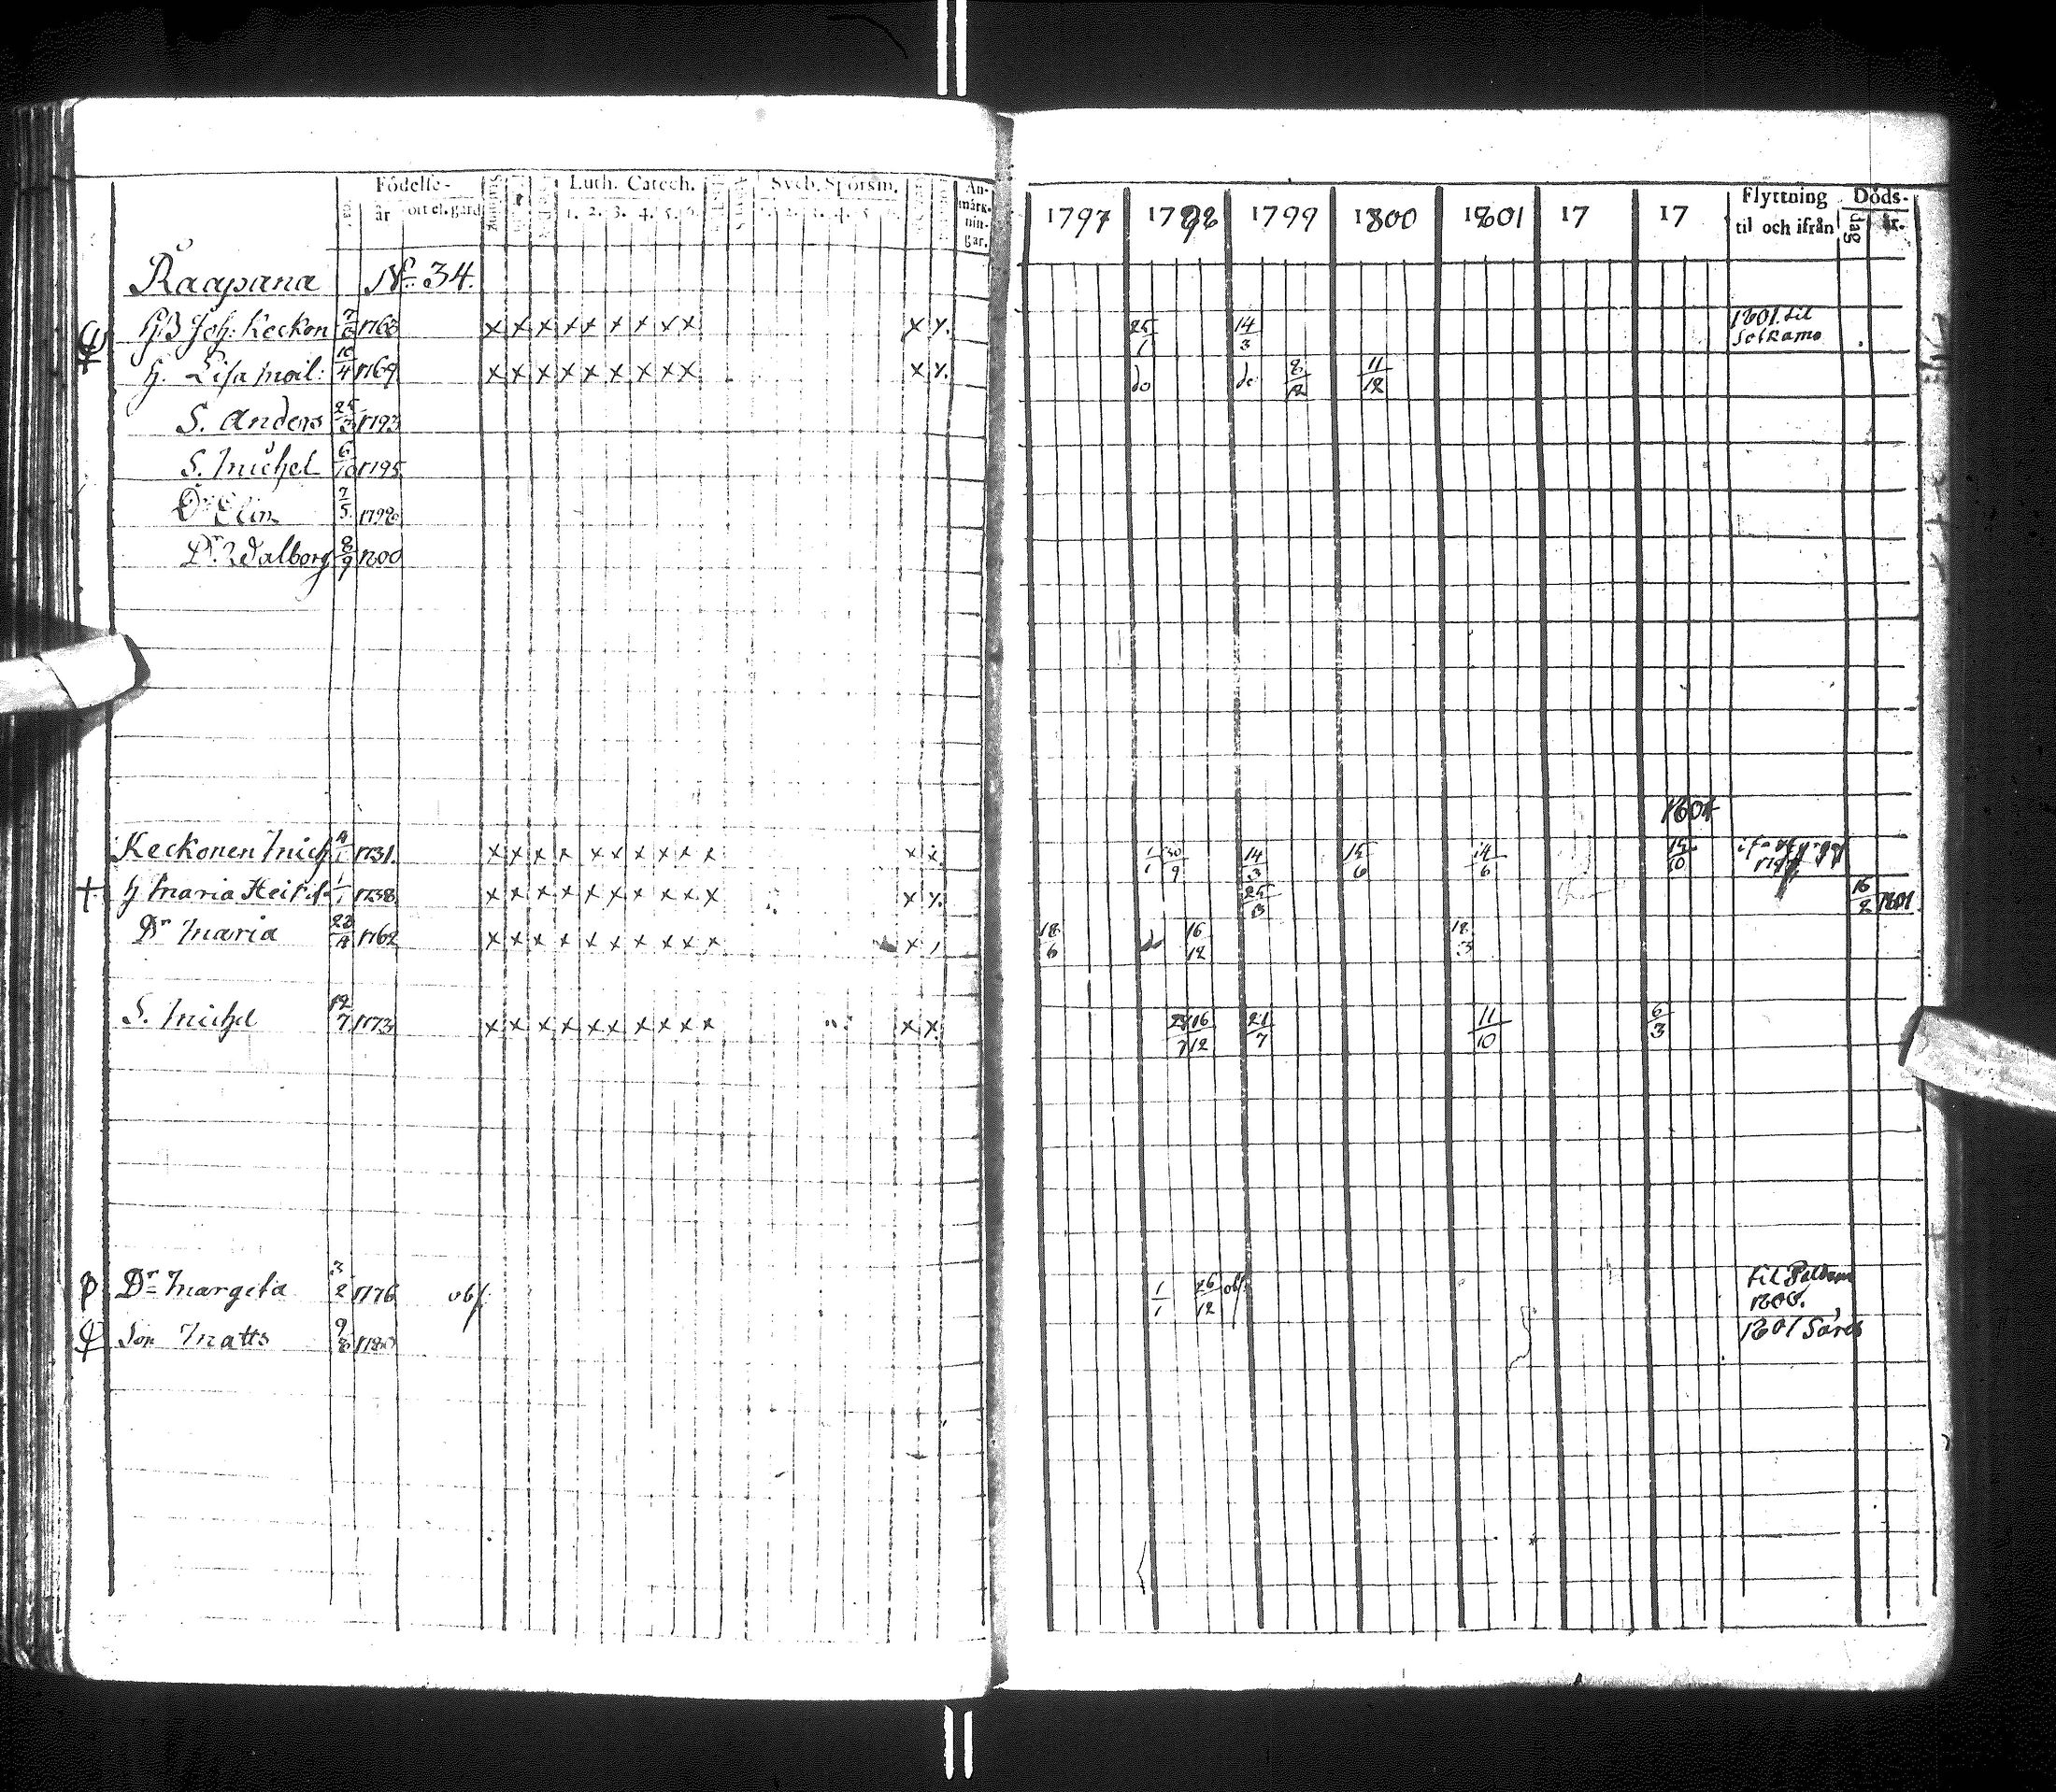 Födelse- Luth. Catech. Sveb. Spörsm. An-märk-nin-gar.
år ort el. gård 1. 2. 3. 4. 5. 6.
1797 1798 1799 1800 1801 17 17 Flyttning til och ifrån Döds- dag år.
Råapana No 34.
HB Joh: Keckon 7/6 1768 x x x x x x x x x x x 25/1 14/3 1801 til
H. Lisa moil: 10/4 1769 x x x x x x x x x x x do do 8/12 11/12
S. Anders 25/3 1793
S. Michel 6/10 1795
Dr Elin 7/5 1798
Dr. Walborg 8/9 1800
1804
Keckonen Mich 1731. x x x x x x x x x x x x 1/1 30/9 14/3 15/6 14/6 15/10
H Maria Heik 1/1 1738 x x x x x x x x x x x x 25/3 16/2 1801
Dr Maria 1762 x x x x x x x x x x x 18/6 do 16/12 18/3
S. Michel 12/7 1773 x x x x x x x x x x x x 16/12 21/7 11/10 6/3
Dr Margeta 3/2 1776 obs. 1/1 26/12 obs. til Paldam
1800.
Son Matts 9/8 1780 1801